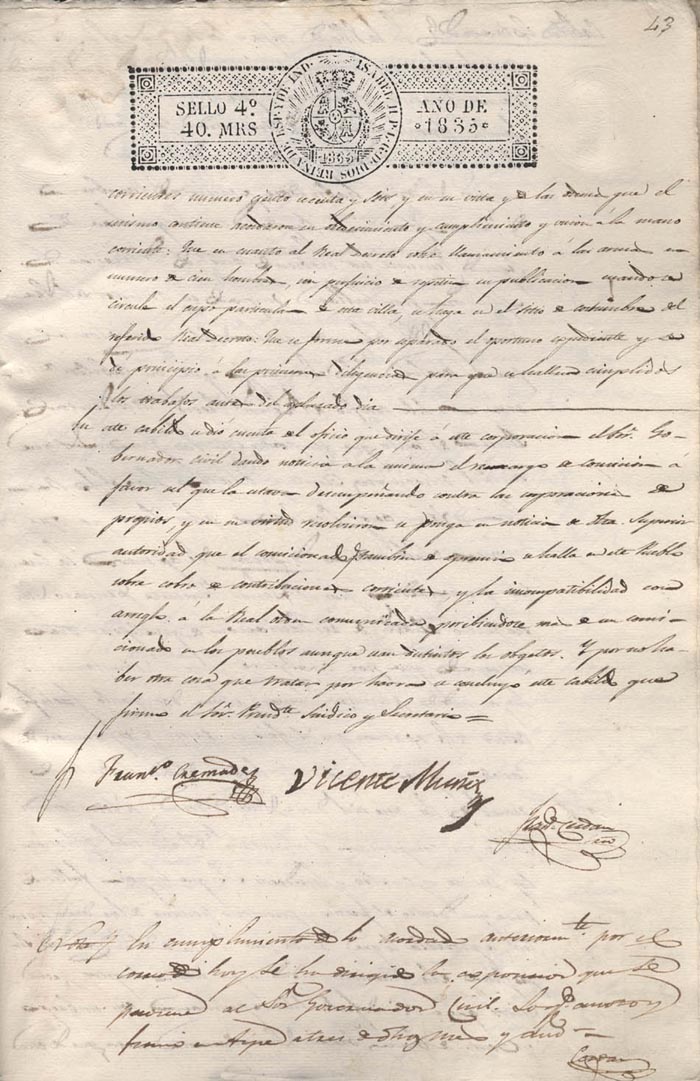 43
SELLO 4º
40. MRS
ISABEL II P. L. G. D. DIOS REINA DE ESP. Y DE IND.
1835
AÑO DE
1835
corrientes numero ciento y seis y en su villa y de las demas que el
mismo contiene acordaron su obedecimiento y cumplimiento y unión á la mano
corriente: Que en cuanto al Real Decreto sobre llamamiento á las armas en
numero de cien hombres, sin perjuicio de repetir su publicacion cuando se
circule el cupo particular de esta villa se haga en el sitio de costumbre del
referido Real Decreto: Que se forme por separado el oportuno expediente y se
de principio á las primeras diligencias para que se hallen cumplidos
los trabajos antes del aplazado dia
En este cabildo se dió cuenta del oficio que dirije á esta corporacion el Sor. Go-
bernador civil dando noticia á la misma el de comision a
favor del que la estava desempeñando contra las corporaciones de
propios, y en su virtud resolvieron se ponga en noticia de otra Superior
autoridad que el comisionado tambien de apremio se halla en este Pueblo
sobre cobro de contribuciones corrientes y la incompatibilidad con
arreglo á la Real orden comunicada mas de un comi-
cionado en los pueblos aunque sean distintos los objetos. Y por no ha-
ber otra cosa que tratar por haora se concluyó este cabildo que
firmo el Sor. Presidte Sindico y Secretario =
Franco. Vicente Muñoz
Nota En cumplimiento de lo acordado anteriormte por el
de hoy se ha dirigido la esposicion que se
previene al Sor Governador Civil. Lo qe anoto y
firmo en a tres de dho mes y año =